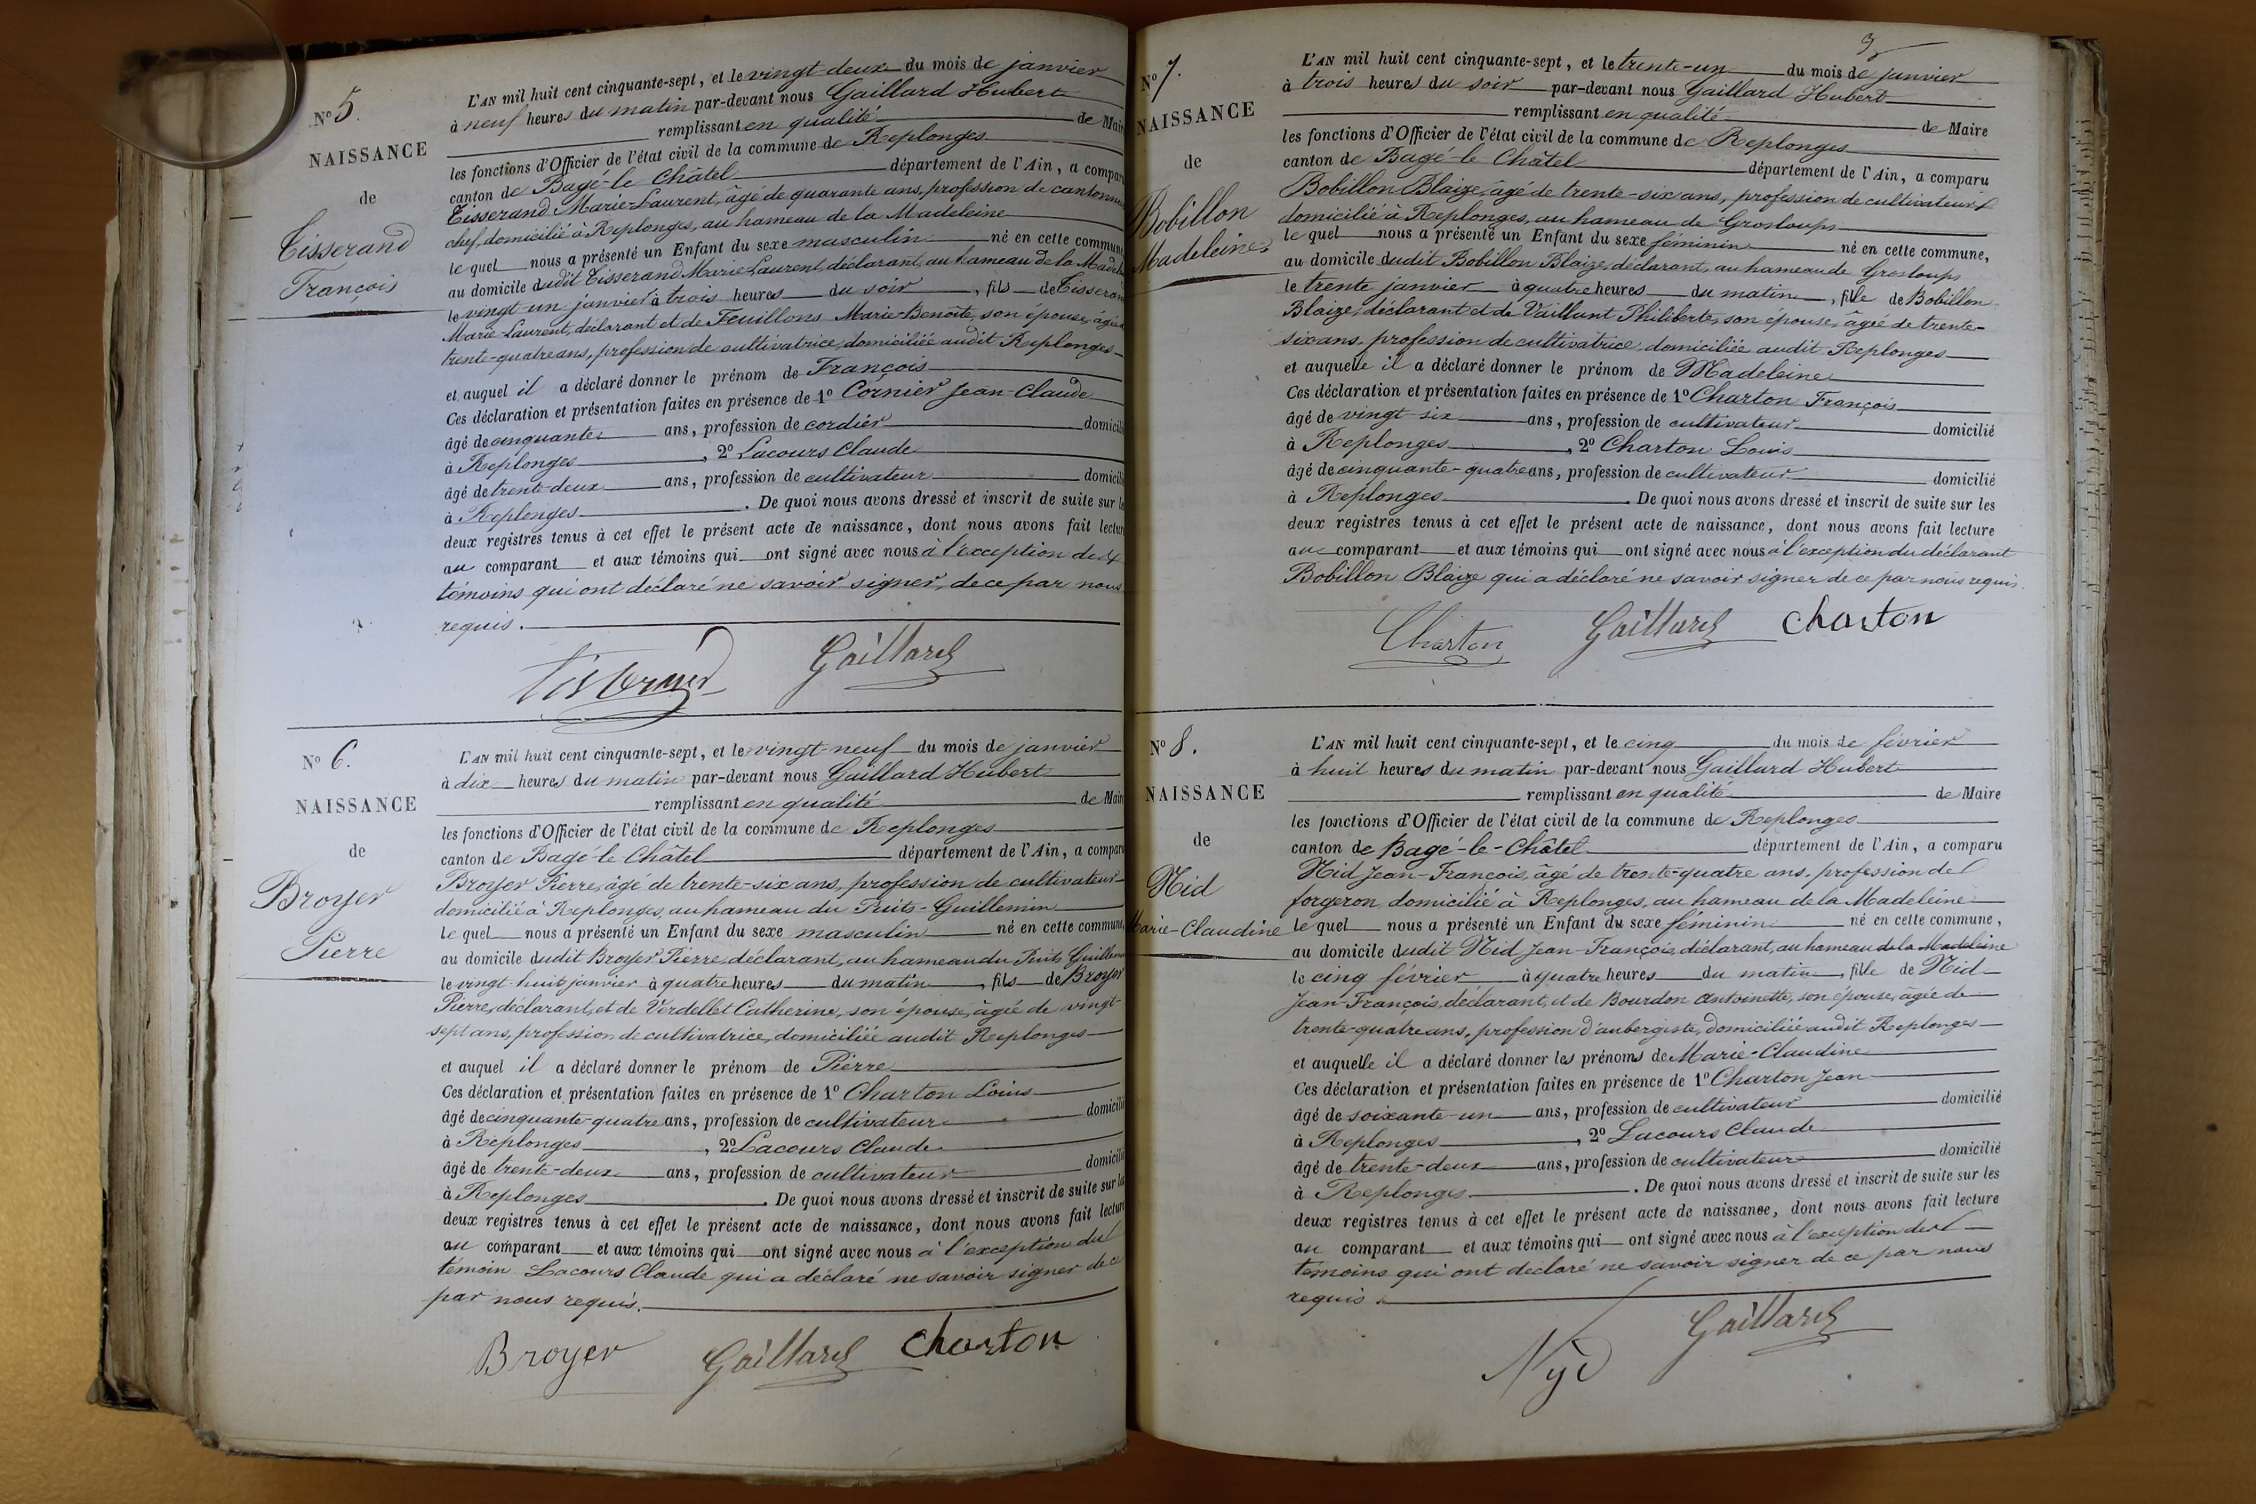 N° 5.
NAISSANCE
de
Tisserand
François
L'AN mil huit cent cinquante-sept, et le vingt deux du mois de janvier
à neuf heures du matin par-devant nous Gaillard Hubert
remplissant en qualité de Maire
les fonctions d'Officier de l'état civil de la commune de Replonges
canton de Bagé-le Châtel département de l'Ain, a comparu
Tisserand Marie-Laurent, âgé de quarante ans, profession de cantonnier
chef, domicilié à Replonges, au hameau de la Madeleine
le quel nous a présenté un Enfant du sexe masculin né en cette commune
au domicile dudit Tisserand Marie Laurent, déclarant, au hameau de la Madel
le vingt un janvier à trois heures du soir, fils de Tisserand
Marie Laurent, déclarant et de Feuillons Marie-Benoîte, son épouse, âgée
trente-quatre ans, profession de cultivatrice, domiciliée audit Replonges
et auquel il a déclaré donner le prénom de François
Ces déclaration et présentation faites en présence de 1° Cornier Jean-Claude
âgé de cinquante ans, profession de cordier domicilié
à Replonges, 2° Lacours Claude
âgé de trente-deux ans, profession de cultivateur domicilié
à Replonges. De quoi nous avons dressé et inscrit de suite sur les
deux registres tenus à cet effet le présent acte de naissance, dont nous avons fait lecture
au comparant et aux témoins qui ont signé avec nous à l'exception des
témoins qui ont déclaré ne savoir signer, de ce par nous
requis.
Tisserand Gaillard
N° 6.
NAISSANCE
de
Broyer
Pierre
L'AN mil huit cent cinquante-sept, et le vingt neuf du mois de janvier
à dix heures du matin par-devant nous Gaillard Hubert
remplissant en qualité de Maire
les fonctions d'Officier de l'état civil de la commune de Replonges
canton de Bagé-le Châtel département de l'Ain, a comparu
Broyer Pierre, âgé de trente-six ans, profession de cultivateur
domicilié à Replonges, au hameau du Puits-Guillemin
le quel nous a présenté un Enfant du sexe masculin né en cette commune,
au domicile dudit Broyer Pierre, déclarant, au hameau du Puits Guillemin
le vingt-huit janvier à quatre heures du matin, fils de Broyer
Pierre, déclarant, et de Verdellet Catherine, son épouse, âgée de vingt-
sept ans, profession de cultivatrice, domiciliée audit Replonges
et auquel il a déclaré donner le prénom de Pierre
Ces déclaration et présentation faites en présence de 1° Charton Louis
âgé de cinquante-quatre ans, profession de cultivateur domicilié
à Replonges, 2° Lacours Claude
âgé de trente-deux ans, profession de cultivateur domicilié
à Replonges. De quoi nous avons dressé et inscrit de suite sur les
deux registres tenus à cet effet le présent acte de naissance, dont nous avons fait lecture
au comparant et aux témoins qui ont signé avec nous à l'exception du
témoin Lacours Claude qui a déclaré ne savoir signer de ce
par nous requis.
Broyer Gaillard Charton
3
N° 7.
NAISSANCE
de
Bobillon
Madeleine
L'AN mil huit cent cinquante-sept, et le trente-un du mois de janvier
à trois heures du soir par-devant nous Gaillard Hubert
remplissant en qualité de Maire
les fonctions d'Officier de l'état civil de la commune de Replonges
canton de Bagé-le Châtel département de l'Ain, a comparu
Bobillon Blaize, âgé de trente-six ans, profession de cultivateur
domicilié à Replonges, au hameau de Grosloups
le quel nous a présenté un Enfant du sexe féminin né en cette commune,
au domicile dudit Bobillon Blaize, déclarant, au hameau de Grosloups
le trente janvier à quatre heures du matin, fille de Bobillon
Blaize, déclarant et de Vaillant Philiberte, son épouse, âgée de trente-
six ans, profession de cultivatrice, domiciliée audit Replonges
et auquelle il a déclaré donner le prénom de Madeleine
Ces déclaration et présentation faites en présence de 1° Charton François
âgé de vingt six ans, profession de cultivateur domicilié
à Replonges, 2° Charton Louis
âgé de cinquante-quatre ans, profession de cultivateur domicilié
à Replonges. De quoi nous avons dressé et inscrit de suite sur les
deux registres tenus à cet effet le présent acte de naissance, dont nous avons fait lecture
au comparant et aux témoins qui ont signé avec nous à l'exception du déclarant
Bobillon Blaize qui a déclaré ne savoir signer de ce par nous requis.
Charton Gaillard Charton
N° 8.
NAISSANCE
de
Nid
Marie-Claudine
L'AN mil huit cent cinquante-sept, et le cinq du mois de février
à huit heures du matin par-devant nous Gaillard Hubert
remplissant en qualité de Maire
les fonctions d'Officier de l'état civil de la commune de Replonges
canton de Bagé-le-Châtel département de l'Ain, a comparu
Nid Jean-François, âgé de trente-quatre ans, profession de
forgeron, domicilié à Replonges, au hameau de la Madeleine
le quel nous a présenté un Enfant du sexe féminin né en cette commune,
au domicile dudit Nid Jean-François, déclarant, au hameau de la Madeleine
le cinq février à quatre heures du matin, fille de Nid
Jean-François, déclarant, et de Bourdon Antoinette, son épouse, âgée de
trente-quatre ans, profession d'aubergiste, domiciliée audit Replonges
et auquelle il a déclaré donner les prénoms de Marie-Claudine
Ces déclaration et présentation faites en présence de 1° Charton Jean
âgé de soixante-un ans, profession de cultivateur domicilié
à Replonges, 2° Lacours Claude
âgé de trente-deux ans, profession de cultivateur domicilié
à Replonges. De quoi nous avons dressé et inscrit de suite sur les
deux registres tenus à cet effet le présent acte de naissance, dont nous avons fait lecture
au comparant et aux témoins qui ont signé avec nous à l'exception des
témoins qui ont déclaré ne savoir signer de ce par nous
requis.
Nyd Gaillard